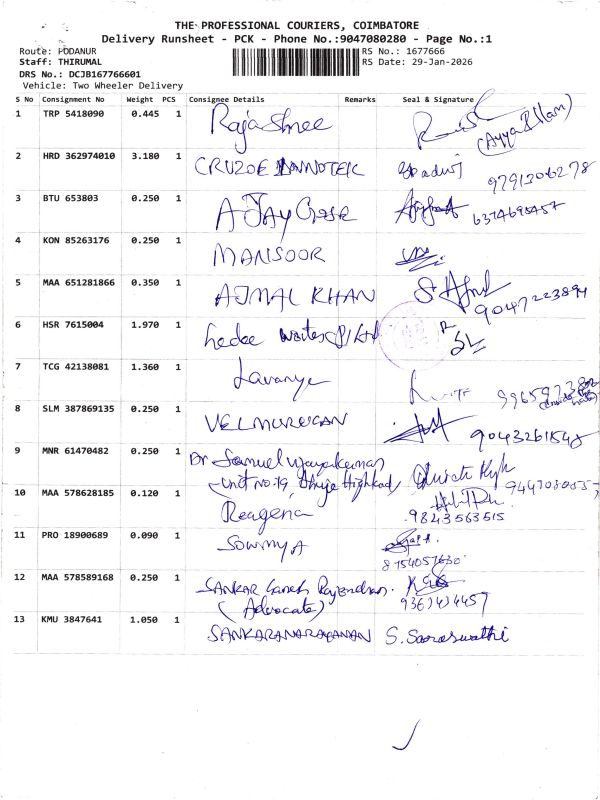 THE PROFESSIONAL COURIERS, COIMBATORE
Delivery Runsheet - PCK - Phone No.:9047080280 - Page No.:1
Route: PODANUR RS No.: 1677666
Staff: THIRUMAL RS Date: 29-Jan-2026
DRS No.: DCJB167766601
Vehicle: Two Wheeler Delivery
S No Consignment No Weight PCS Consignee Details Remarks Seal & Signature
1 TRP 5418090 0.445 1 Raja Shree
(Ayyappillam)
2 HRD 362974010 3.180 1 CRUZOE
9791306278
3 BTU 653803 0.250 1 AJAY
4 KON 85263176 0.250 1 MANSOOR
5 MAA 651281866 0.350 1 AJMAL KHAN
9047223894
6 HSR 7615004 1.970 1
7 TCG 42138081 1.360 1 Lavanya
8 SLM 387869135 0.250 1 VELMURUGAN
9043261548
9 MNR 61470482 0.250 1 Dr Samuel Vijayakumar
Unit No.19,
10 MAA 578628185 0.120 1 Reagena
9843563515
11 PRO 18900689 0.090 1 Sowmya
8754057630
12 MAA 578589168 0.250 1 SANKAR Ganesh Rajendran.
(Advocate)
13 KMU 3847641 1.050 1 SANKARANARAYANAN S. Saraswathi